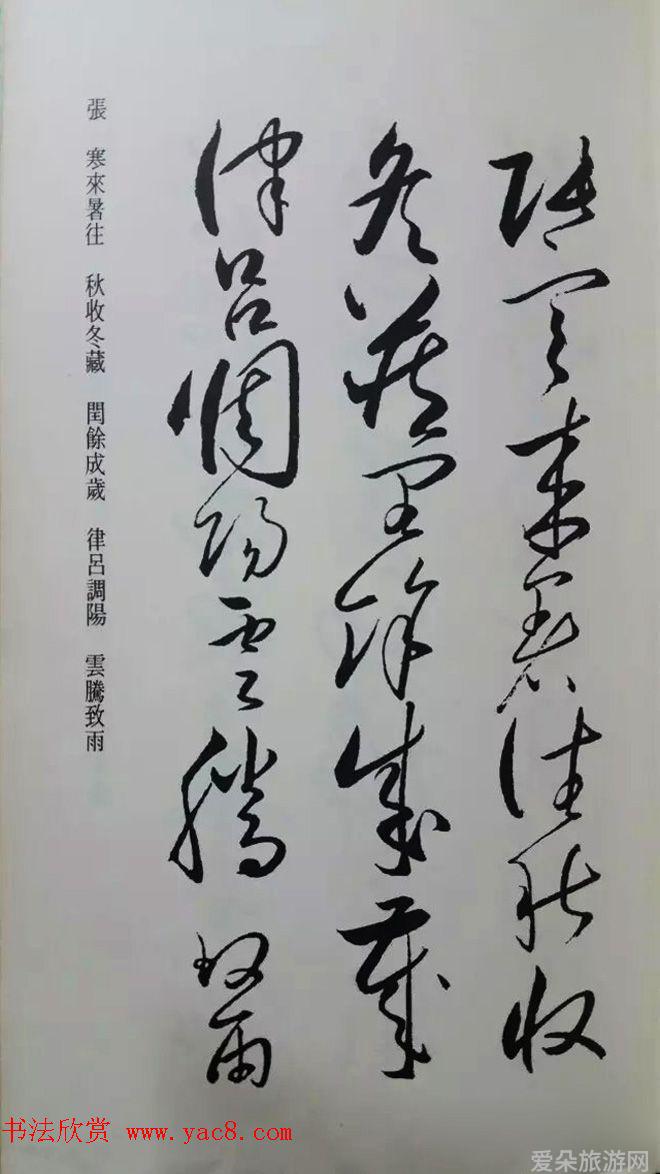 張寒来暑往秋收
冬藏閏餘成歲
律呂調陽雲騰致雨
張 寒來暑往 秋收冬藏 閏餘成歲 律呂調陽 雲騰致雨
书法欣赏 www.yac8.com
爱朵旅游网